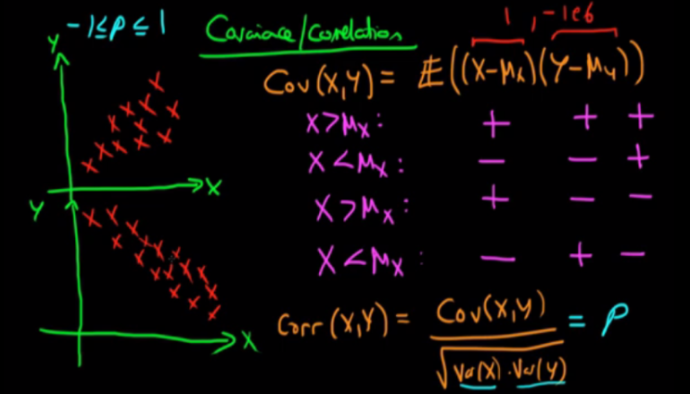 -1≤ρ≤1
Covariance/Correlation
1 , -1e6
Cov(X,Y) = E((X-μx)(Y-μy))
X>μx: + + +
X<μx: - - +
X>μx: + - -
X<μx: - + -
Corr(X,Y) = Cov(X,Y) / √Var(X)·Var(Y) = ρ
Y
X
Y
X